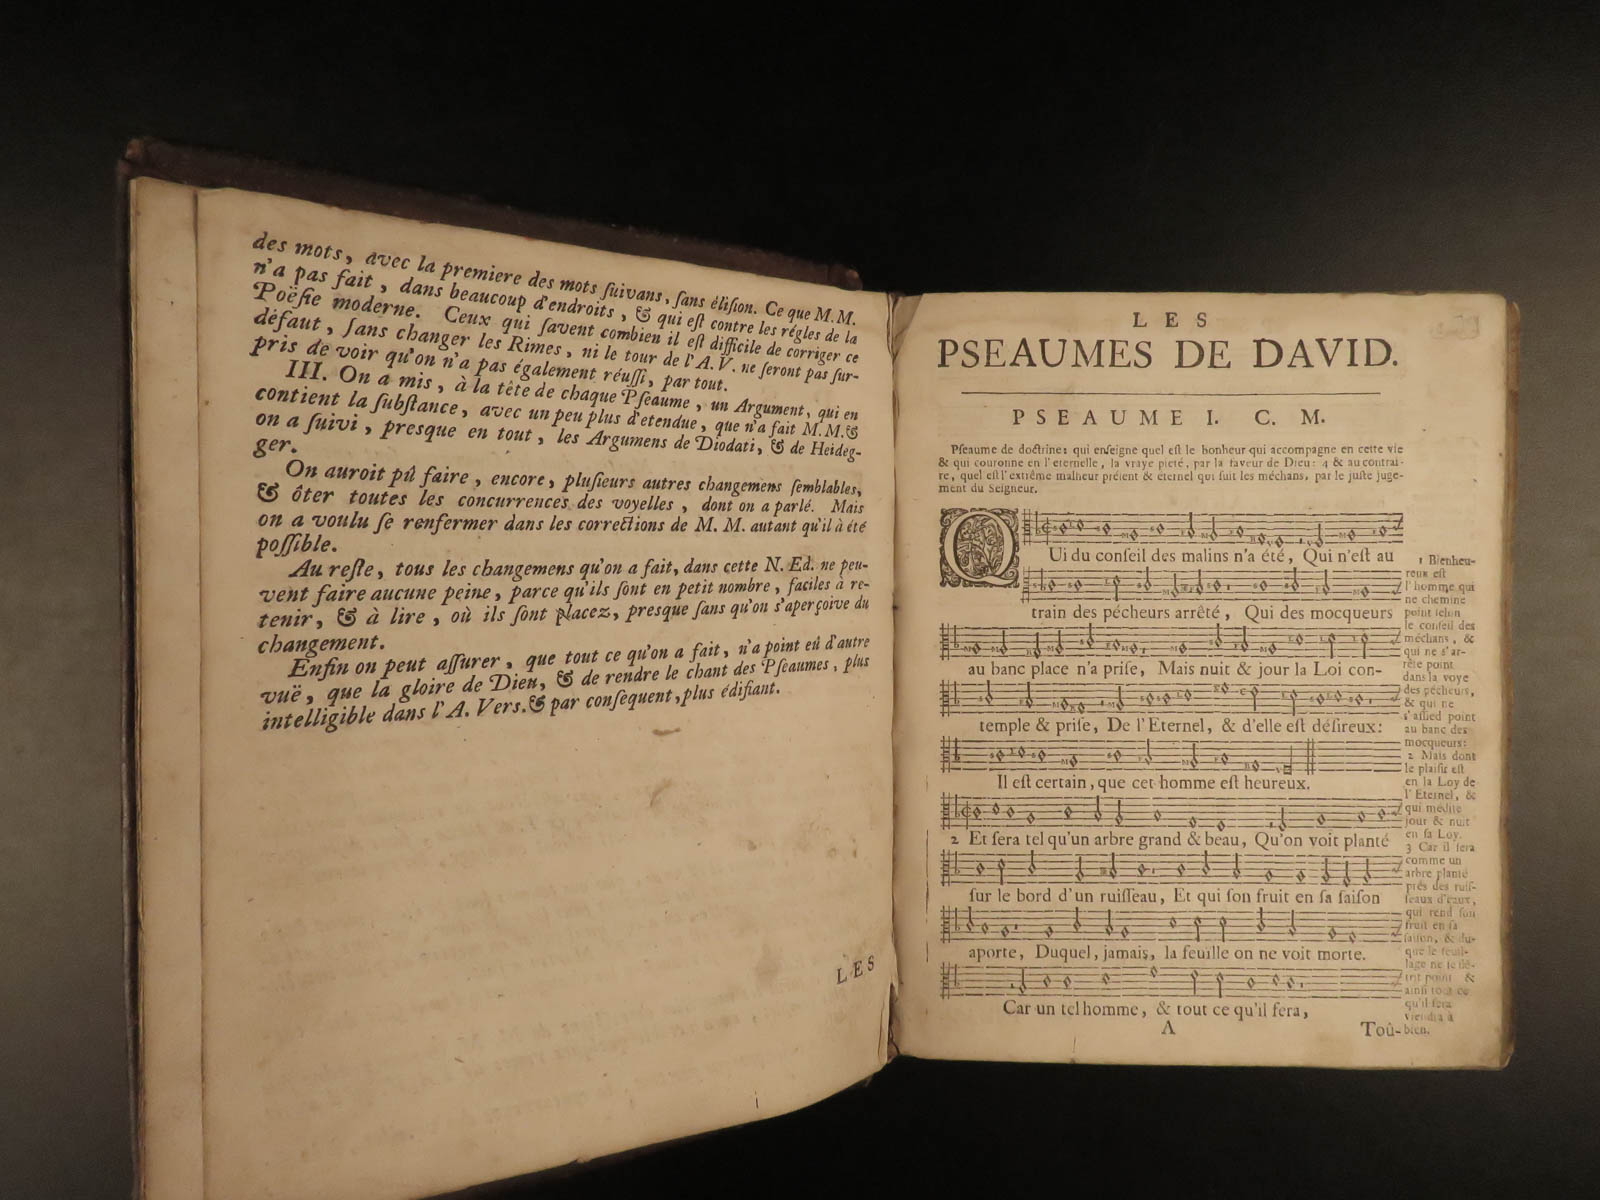 des mots, avec la premiere des mots ſuivans, ſans éliſion. Ce que M. M.
n'a pas fait, dans beaucoup d'endroits, & qui eſt contre les régles de la
Poëſie moderne. Ceux qui ſavent combien il eſt difficile de corriger ce
défaut, ſans changer les Rimes, ni le tour de l'A. V. ne ſeront pas ſur-
pris de voir qu'on n'a pas également réuſſi, par tout.
III. On a mis, à la tête de chaque Pſeaume, un Argument, qui en
contient la ſubſtance, avec un peu plus d'etendue, que n'a fait M. M. &
on a ſuivi, presque en tout, les Argumens de Diodati, & de Heideg-
ger.
On auroit pû faire, encore, pluſieurs autres changemens ſemblables,
& ôter toutes les concurrences des voyelles, dont on a parlé. Mais
on a voulu ſe renfermer dans les corrections de M. M. autant qu'il à été
poſſible.
Au reſte, tous les changemens qu'on a fait, dans cette N. Ed. ne peu-
vent faire aucune peine, parce qu'ils ſont en petit nombre, faciles à re-
tenir, & à lire, où ils ſont placez, presque ſans qu'on s'aperçoive du
changement.
Enfin on peut aſſurer, que tout ce qu'on a fait, n'a point eû d'autre
vuë, que la gloire de Dieu, & de rendre le chant des Pſeaumes, plus
intelligible dans l'A. Vers. & par conſequent, plus édifiant.
LES
LES
PSEAUMES DE DAVID.
PSEAUME I. C. M.
Pſeaume de doctrine: qui enſeigne quel eſt le bonheur qui accompagne en cette vie
& qui couronne en l'eternelle, la vraye pieté, par la faveur de Dieu: 4 & au contrai-
re, quel eſt l'extrême malheur préſent & éternel qui ſuit les méchans, par le juſte juge-
ment du Seigneur.
QUi du conſeil des malins n'a été, Qui n'eſt au
train des pécheurs arrêté, Qui des mocqueurs
au banc place n'a priſe, Mais nuit & jour la Loi con-
temple & priſe, De l'Eternel, & d'elle eſt déſireux:
Il eſt certain, que cet homme eſt heureux.
2 Et ſera tel qu'un arbre grand & beau, Qu'on voit planté
ſur le bord d'un ruiſſeau, Et qui ſon fruit en ſa ſaiſon
aporte, Duquel, jamais, la feuille on ne voit morte.
Car un tel homme, & tout ce qu'il fera,
A
Toû-
1 Bienheu-
reux eſt
l'homme qui
ne chemine
point ſelon
le conſeil des
méchans, &
qui ne s'ar-
rête point
dans la voye
des pécheurs,
& qui ne
s'aſſied point
au banc des
mocqueurs:
2 Mais dont
le plaiſir eſt
en la Loy de
l'Eternel, &
qui médite
jour & nuit
en ſa Loy.
3 Car il ſera
comme un
arbre planté
prés des ruiſ-
ſeaux d'eaux,
qui rend ſon
fruit en ſa
ſaiſon, & du-
que le feuil-
lage ne ſe flê-
trit point &
ainſi tout ce
qu'il fera
viendra à
bien.